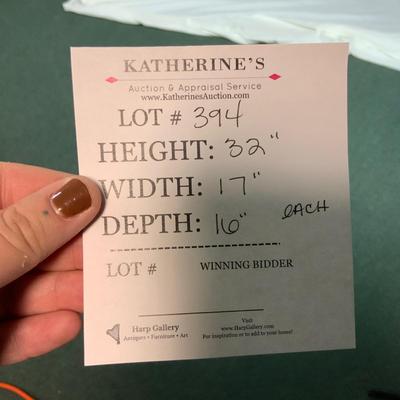 KATHERINE'S
Auction & Appraisal Service
www.KatherinesAuction.com
LOT # 394
HEIGHT: 32"
WIDTH: 17"
DEPTH: 16" EACH
LOT # WINNING BIDDER
Harp Gallery
Antiques • Furniture • Art
Visit
www.HarpGallery.com
For inspiration or to add to your home!